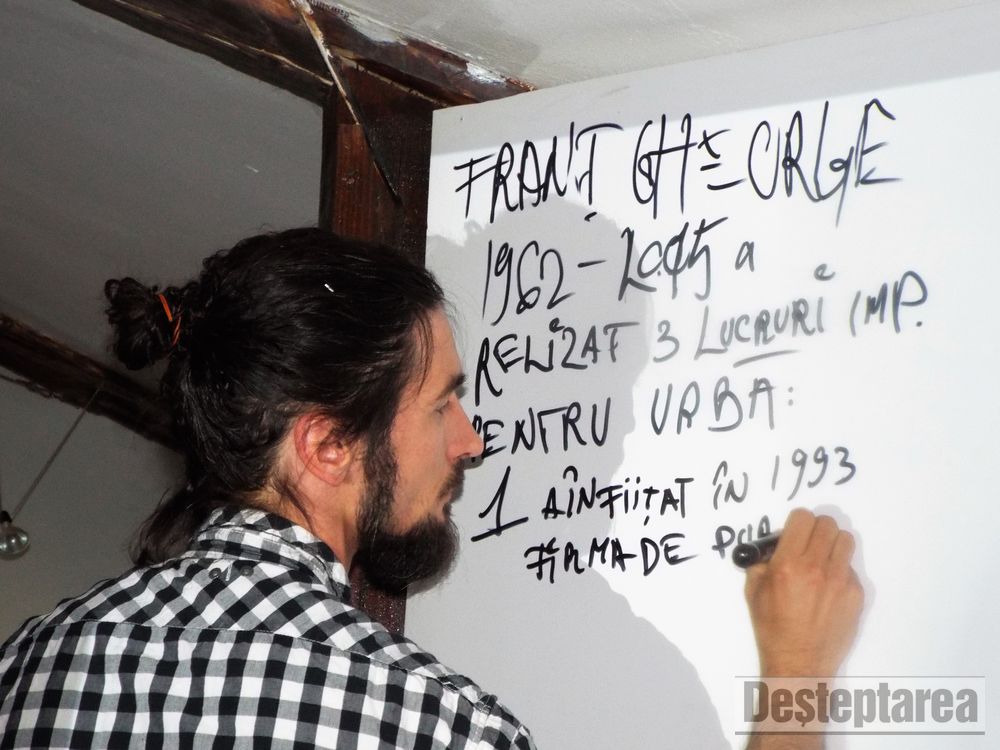 FRANȚ GHEORGE
1962 - a
RELIZAT 3 LUCRURI IMP.
PENTRU URBA:
1 A ÎNFIIȚAT ÎN 1993
FIRMA DE
Deşteptarea